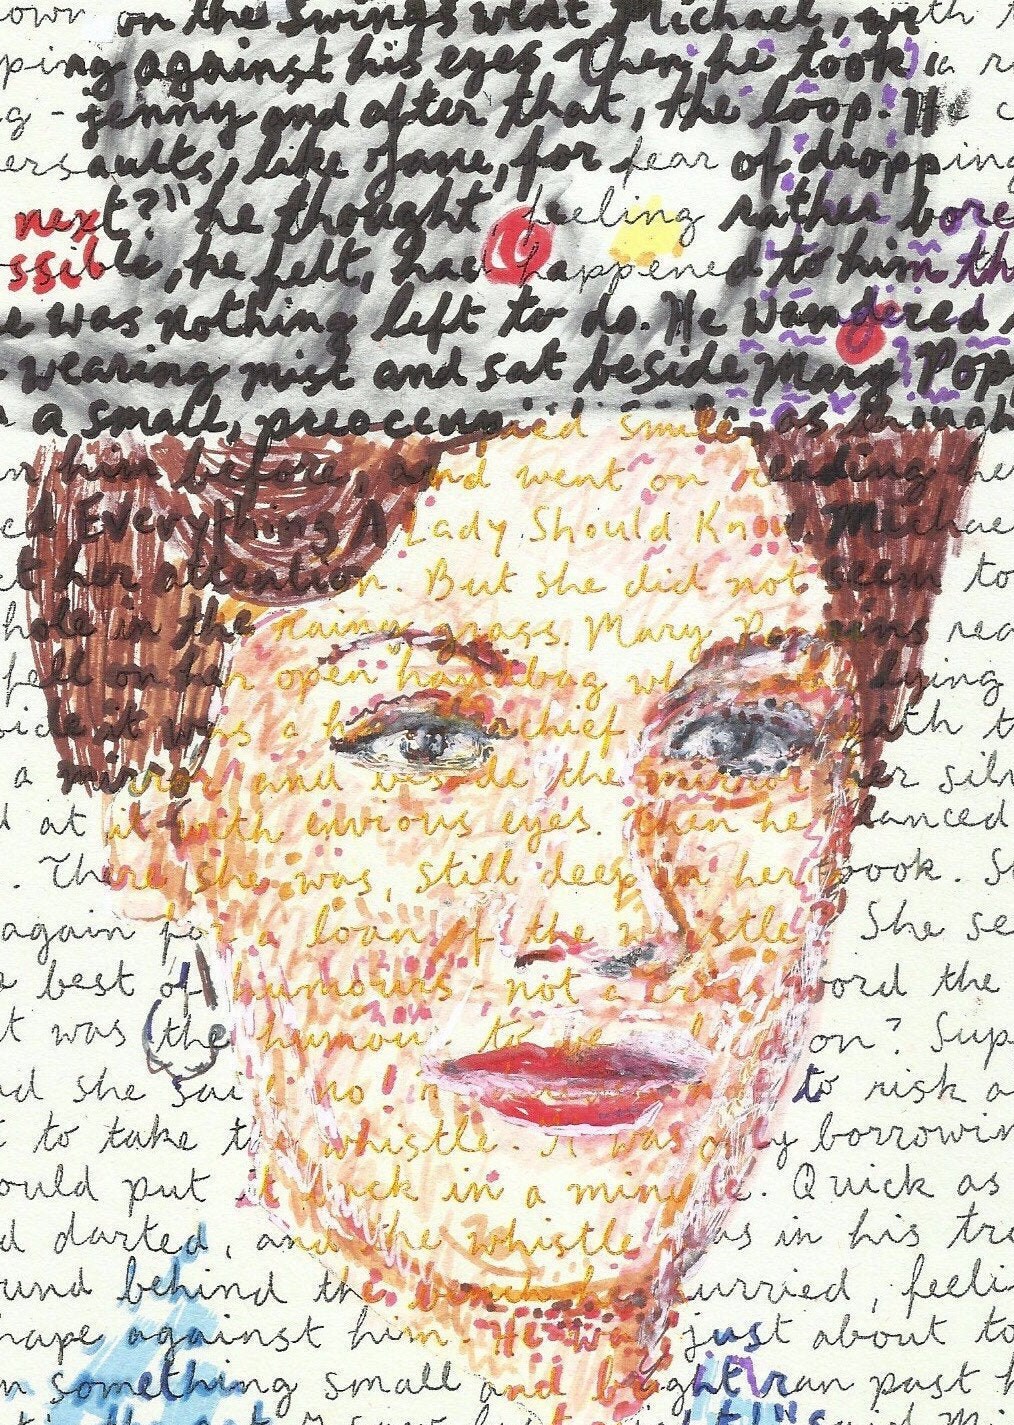 own on the swings went Michael, with
ping against his eyes. Then he took a
g - jenny and after that, the loop. He c
ersaults, like Jane, for fear of dropping
next?" he thought, feeling rather bore
ssible, he felt, had happened to him th
e was nothing left to do. He wandered
wearing mist and sat beside Mary Pop
a small, preoccupied smile, as though
n him before, and went on reading he
ed Everything A Lady Should Know. Michae
ct her attention. But she did not seem to
hole in the rainy grass. Mary Poppins rea
fell on her open handbag wh lying
side it was a handkerchief, ath t
a mirror and beside the mirror her silv
d at it with envious eyes. Then he glanced
. There she was, still deep in her book. S
again for a loan of the whistle? She se
e best of humours - not a cross word the
t was the humour to be on? Sup
nd she said no! to risk a
t to take the whistle. It was only borrowin
ould put it back in a minute. Quick as
d darted, and the whistle was in his tro
und behind the bench he hurried, feeli
hape against him. He was just about to
n something small and bright ran past h